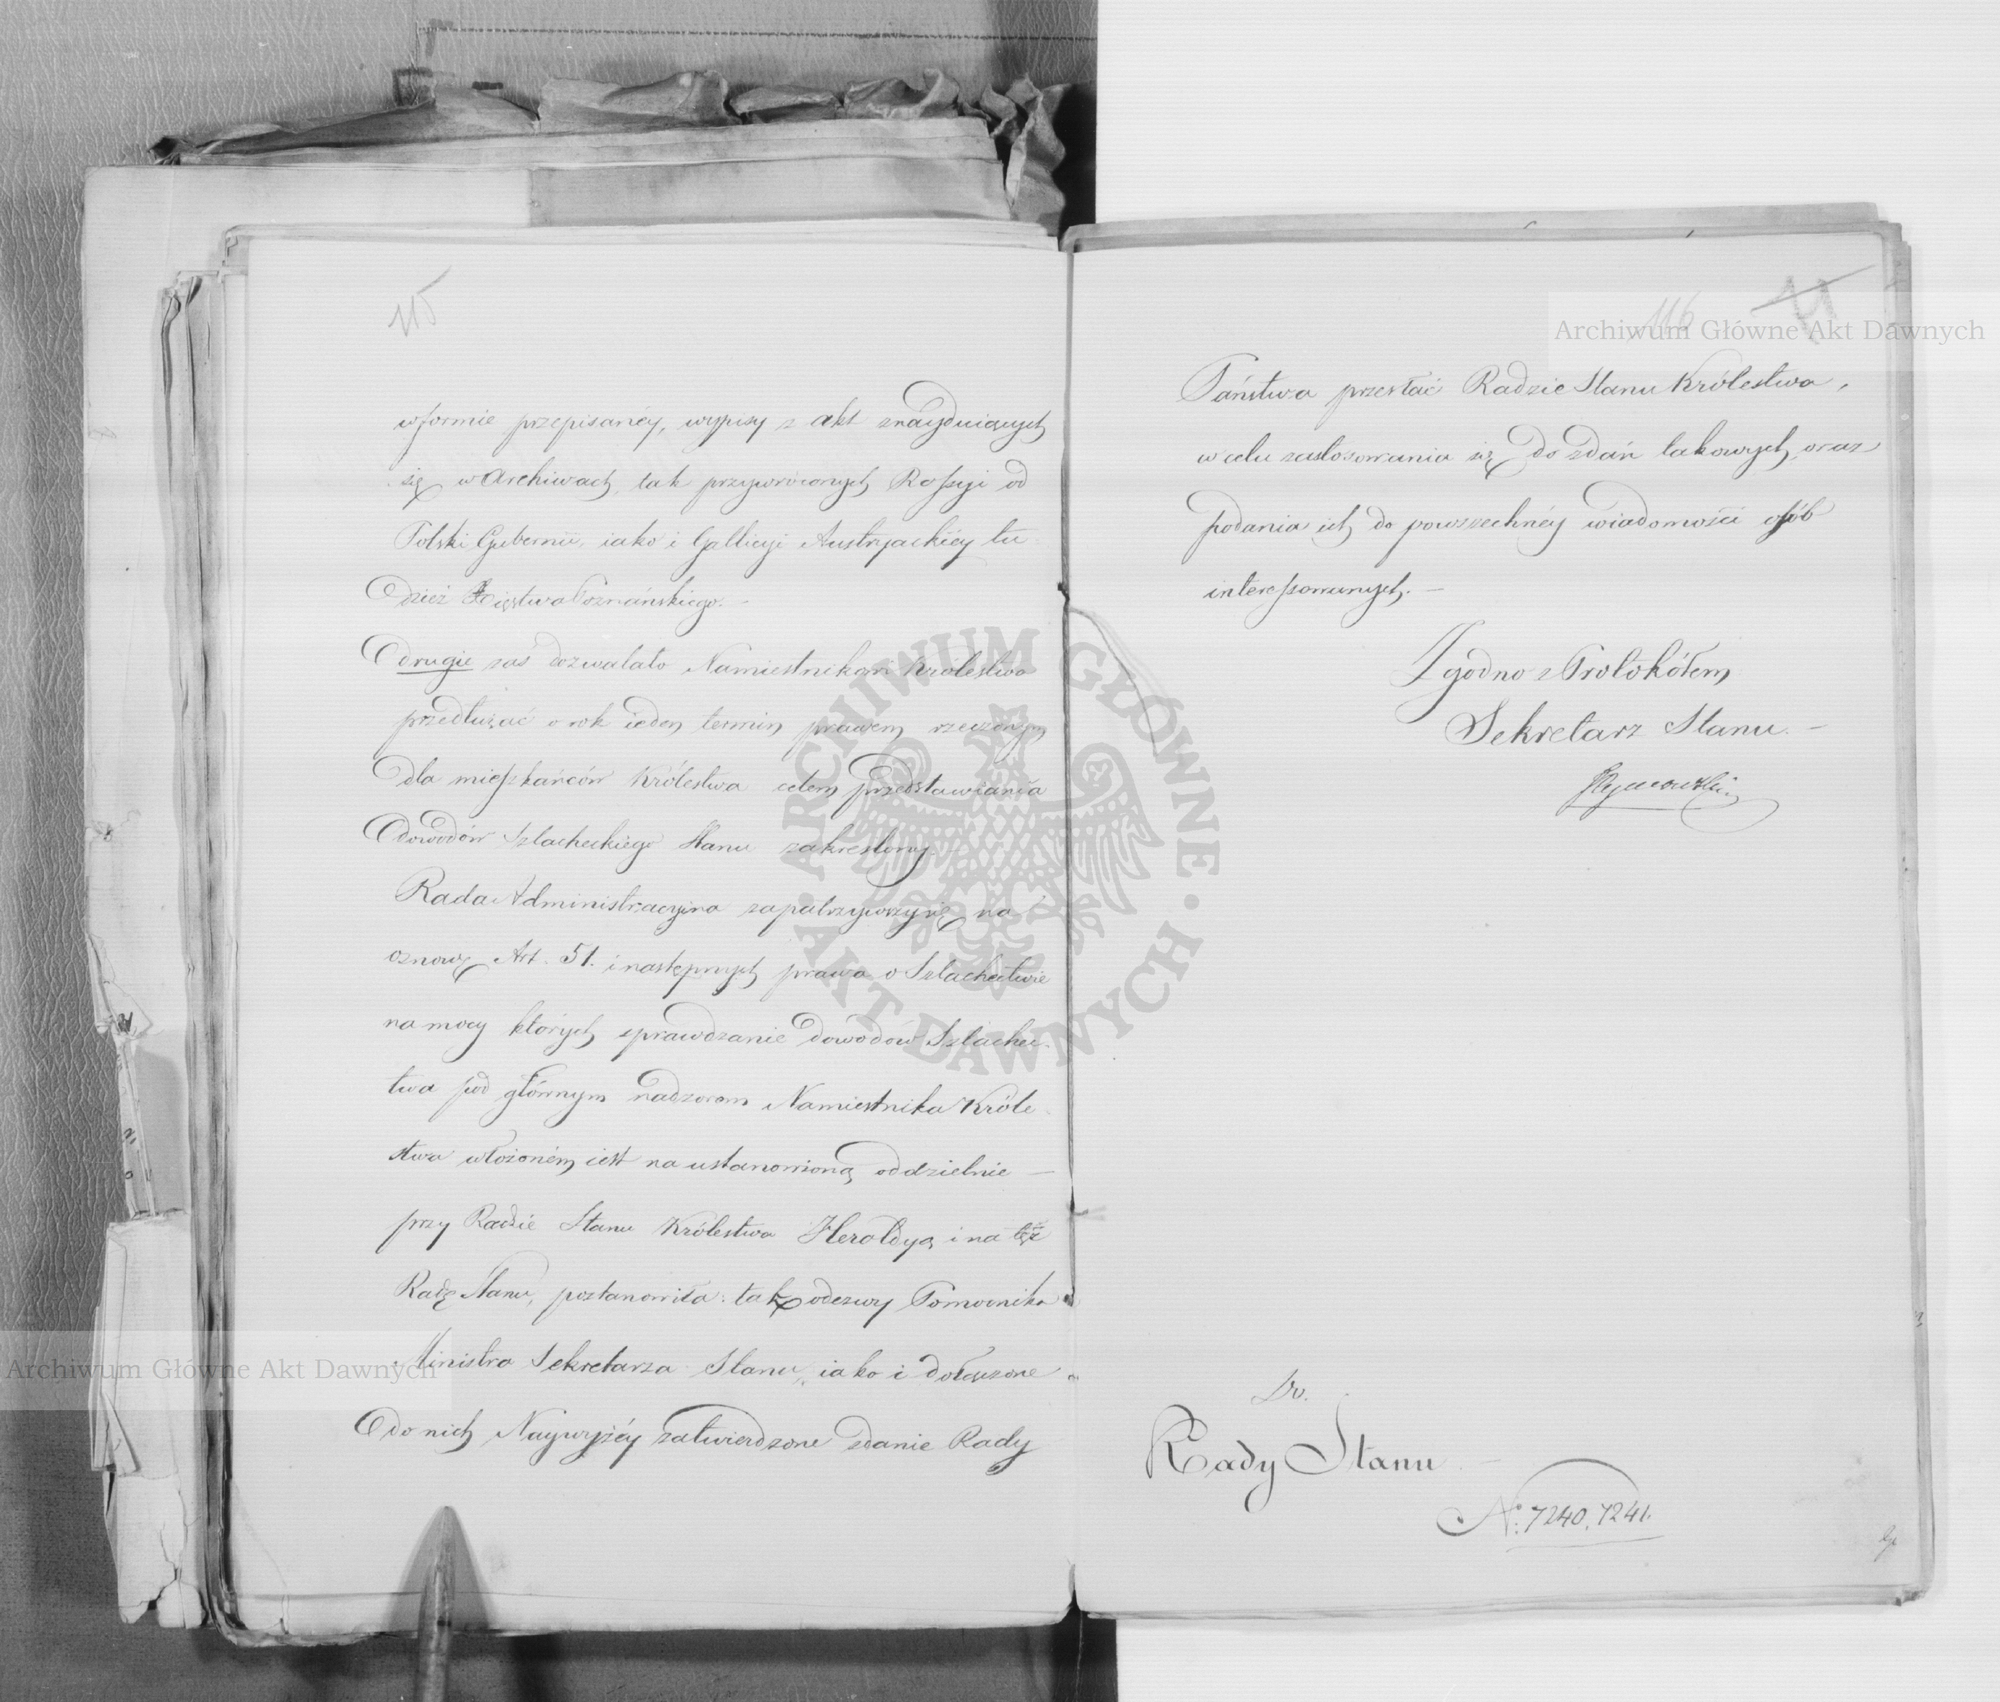 115
w formie przepisanéy, wypisy z akt znayduiących
się w Archiwach, tak przywroconych Rossyi od
Polski Gubernii, iako i Gallicyi Austryackiéy tu-
dzież Xięstwa Poznańskiego. —
drugie zaś dozwalało Namiestnikowi Królestwa
przedłużać o rok ieden termin prawem rzeczonym
dla mieszkańców Królestwa celem przedstawiania
dowodów Szlacheckiego Stanu zakreślony. —
Rada Administracyina zapatrzywszy się na
osnowę Art. 51. i następnych prawa o Szlachectwie
na mocy których sprawdzanie dowodów Szlachec-
twa pod głównym nadzorem Namiestnika Króle-
stwa włożoném iest na ustanowioną oddzielnie —
przy Radzie Stanu Królestwa Heroldyą i na też
Radę Stanu, postanowiła: tak odezwy Pomocnika
Ministra Sekretarza Stanu, iako i dołączone
do nich Naywyżéy zatwierdzone zdanie Rady
116
11
Państwa przesłać Radzie Stanu Królestwa,
w celu zastosowania się do zdań takowych, oraz
podania ich do powszechnéy wiadomości osób
interessowanych. —
Zgodno z Protokółem
Sekretarz Stanu. —
Do.
Rady Stanu —
N: 7240, 7241.
Archiwum Główne Akt Dawnych
Archiwum Główne Akt Dawnych
ARCHIWUM GŁÓWNE • AKT DAWNYCH •